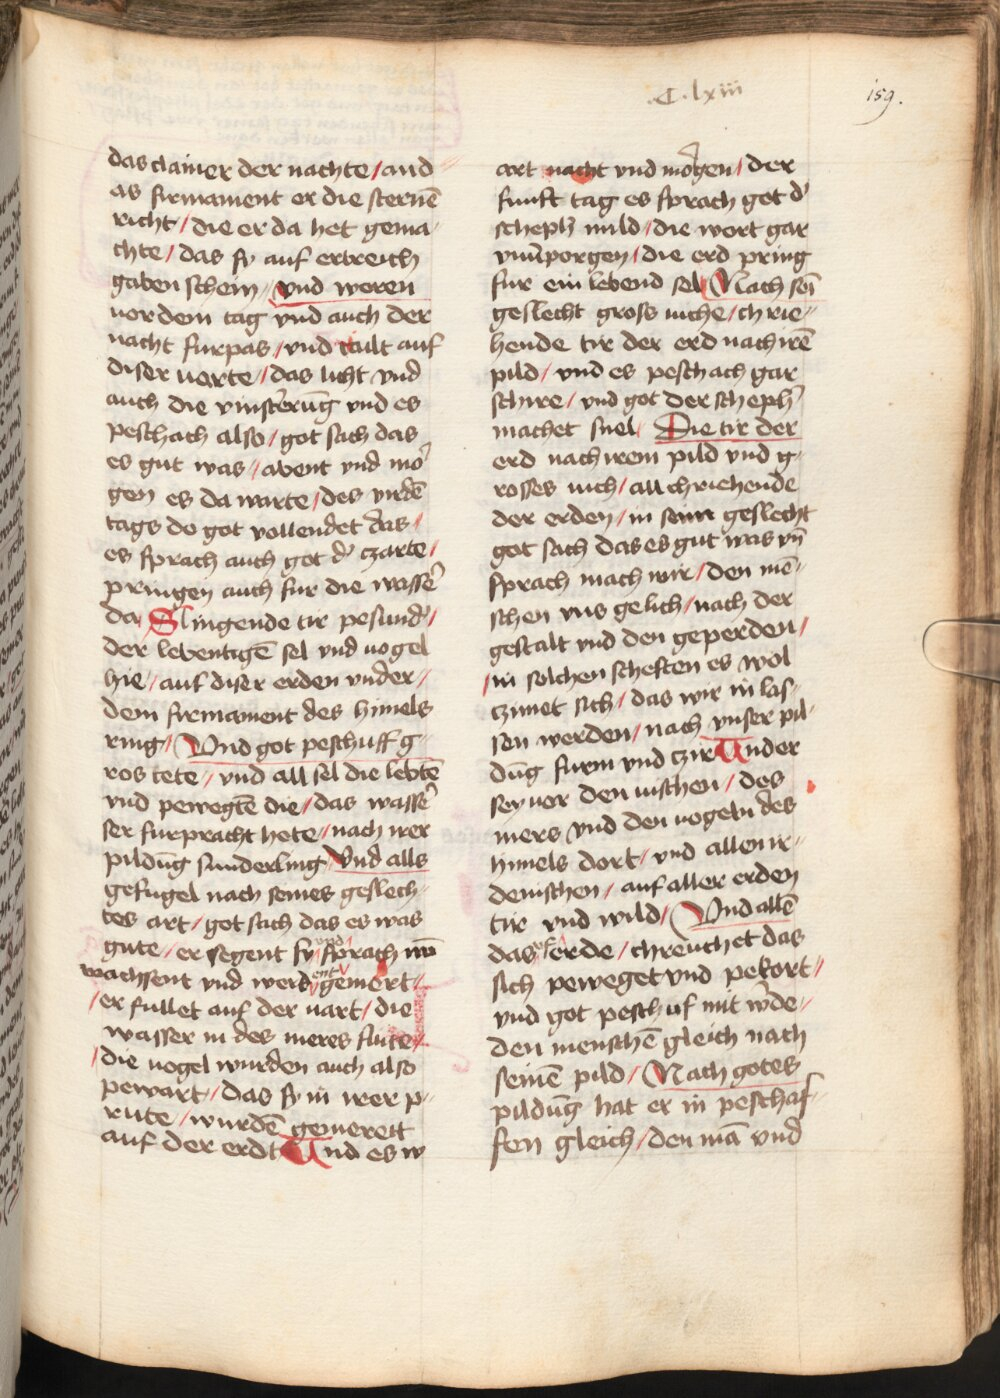 .C.lxiii
159.
das clainer der nachte / an d
as firmament er die sternē
richt / die er da het gema
chte / das sy auf ertreich
gaben schein / vnd woren
vor dem tag vnd auch der
nacht furpas / vnd tailt auf
diser varte / das licht vnd
auch die vinsterūg vnd es
peschach also / got sach das
es gut was / abent vnd mor
gen es da warte / des virdē
tags do got vollendet das /
es sprach auch got dʼ czarte /
pringen auch fur die wasserʼ
da Slingende tir pesundʼ /
der lebentigē sel vnd vogel
hie / auf diser erden vnder /
dem firmament des himels
ring / Vnd got peschuff g
ros tete / vnd all sel die lebtē
vnd pewegtē die / das wasserʼ
ser furpracht hete / nach irer
pildūg sunderling Vnd alls
gefugel nach seines geslech
tes art / got sach das es was
gute / er segent sy vnd sprach nū
wachsent vnd werdent gemert /
/ er fullet auf der vart / die
wasser in des meres flute /
/ die vogel wurden auch also
pewart / das sy in irer p
rute / wurdē gemereit
auf der erdt Vnd es w
art nacht vnd morgen / der
funft tag es sprach got dʼ
schephʼ mild / die wort gar
vnuʼporgen / die erd pring
fur ein lebend sel Nach sei
geslecht gross viche / chrie
hende tir der erd nach irē
pild / vnd es peschach gar
schire / vnd got der schephʼ
machet snel / Die tir der
erd nach irem pild vnd g
rosses vich / all chriehende
der erden / in seim geslecht
got sach das es gut was vn̄
sprach mach wir / den mē
schen vns gelich / nach der
gestalt vnd den geperden /
/ in solchen scheften es wol
czimet sich / das wir in las
sen werden / nach vnser pil
dūg furm vnd czir Vnder
sey vor den vischen / des
mers vnd den vogeln des
himels dort / vnd allen ir
denischen / auf aller erden
tir vnd wild / Vnd allē
das auf erde / chreuchet das
sich peweget vnd pekort /
vnd got peschuf mit wʼde
den menschē gleich nach
seinē pild / Nach gotes
pildūg hat er in peschaf
fen gleich / den mā vnd